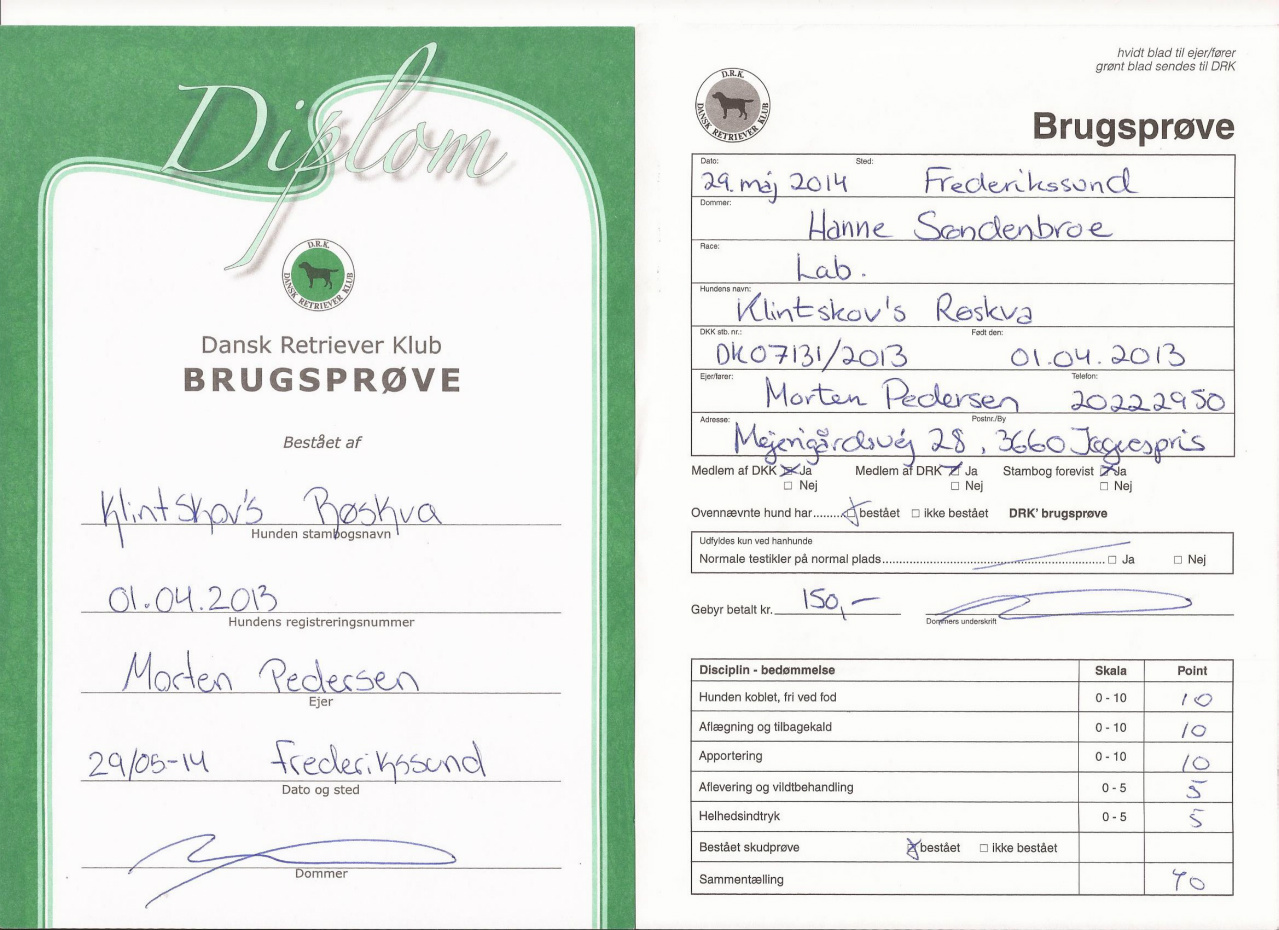 Diplom
D.R.K.
DANSK RETRIEVER KLUB
Dansk Retriever Klub
BRUGSPRØVE
Bestået af
Klintskov's Røskva
Hunden stambogsnavn
01.04.2013
Hundens registreringsnummer
Morten Pedersen
Ejer
29/05-14 Frederikssund
Dato og sted
Dommer
hvidt blad til ejer/fører
grønt blad sendes til DRK
D.R.K.
DANSK RETRIEVER KLUB
Brugsprøve
Dato: Sted:
29. maj 2014 Frederikssund
Dommer:
Hanne Søndenbroe
Race:
Lab.
Hundens navn:
Klintskov's Røskva
DKK stb. nr.: Født den:
DK07131/2013 01.04.2013
Ejer/fører: Telefon:
Morten Pedersen 20222950
Adresse: Postnr./By
Mejerigårdsvej 28, 3660 Jægerspris
Medlem af DKK Ja Medlem af DRK Ja Stambog forevist Ja
Nej Nej Nej
Ovennævnte hund har........ bestået ikke bestået DRK' brugsprøve
Udfyldes kun ved hanhunde
Normale testikler på normal plads........ Ja Nej
Gebyr betalt kr. 150,-
Dommers underskrift
Disciplin - bedømmelse Skala Point
Hunden koblet, fri ved fod 0 - 10 10
Aflægning og tilbagekald 0 - 10 10
Apportering 0 - 10 10
Aflevering og vildtbehandling 0 - 5 5
Helhedsindtryk 0 - 5 5
Bestået skudprøve bestået ikke bestået
Sammentælling 40